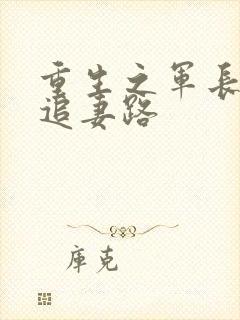 重生之军长
追妻路
库克